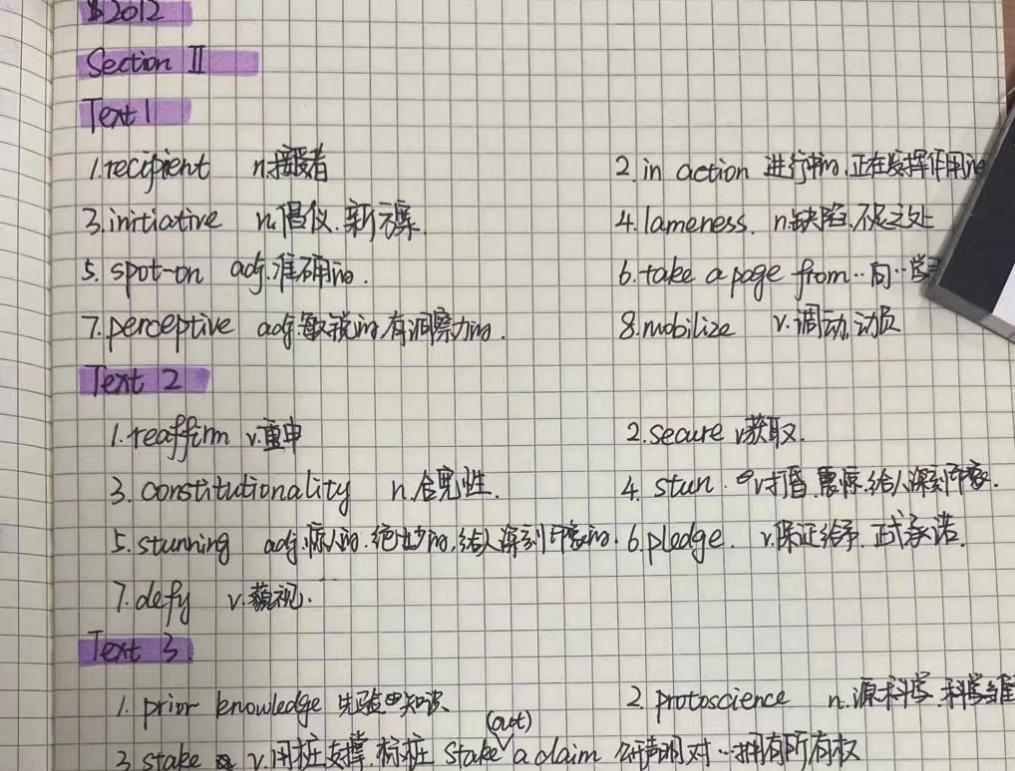 2012
Section II
Text 1
1.recipient n.接受者 2. in action 进行中的.正在发挥作用的
3.initiative n.倡仪.新方案. 4.lameness. n.缺陷.不足之处
5. spot-on adj.准确的. 6.take a page from‥向‥学
7.perceptive adj.敏锐的.有洞察力的. 8.mobilize v.调动.动员
Text 2
1.reaffirm v.重申 2.secure v.获取.
3. constitutionality n.合宪性. 4. stun. v.打昏.震惊.给人深刻印象.
5.stunning adj.惊人的.绝妙的.给人深刻印象的. 6.pledge. v.保证给予.正式承诺.
7.defy v.藐视.
Text 3.
1. prior knowledge 先验知识 2. protoscience n.源科学.科学
3 stake v.用桩支撑.标桩 stake (out) a claim 公开声明对‥拥有所有权